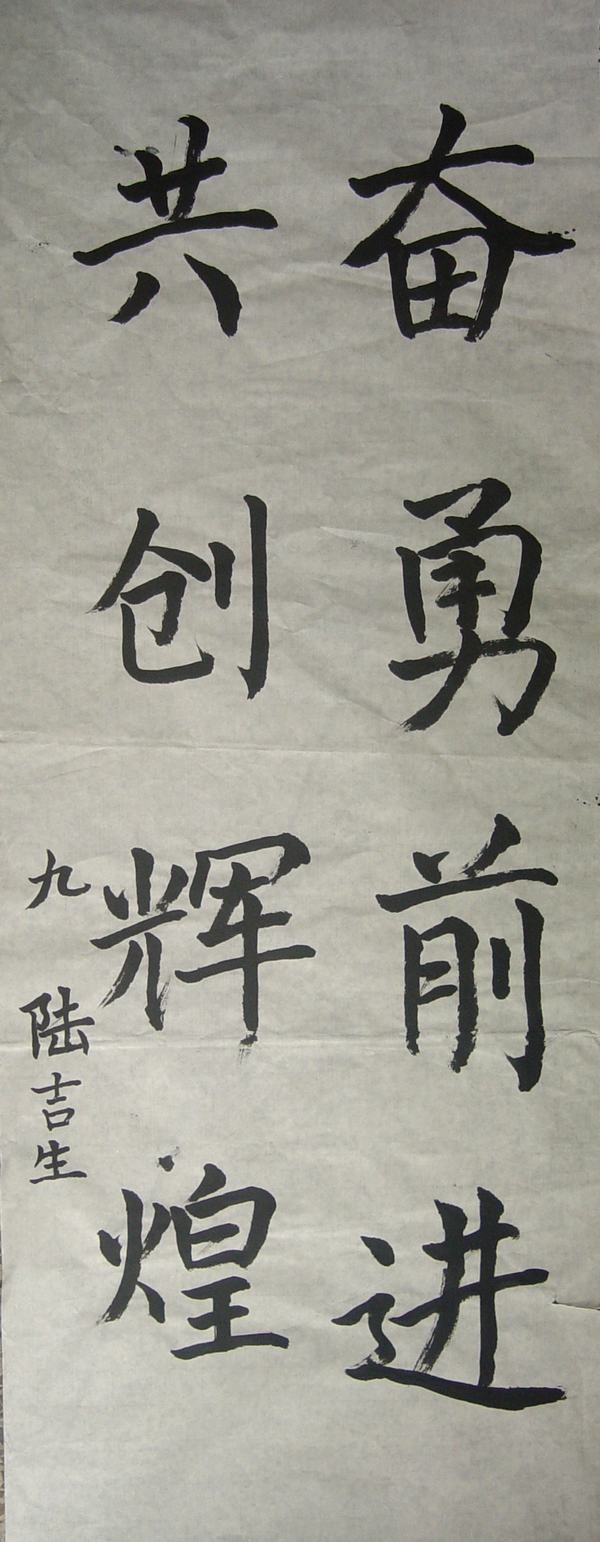 奋勇前进
共创辉煌
九 陆吉生